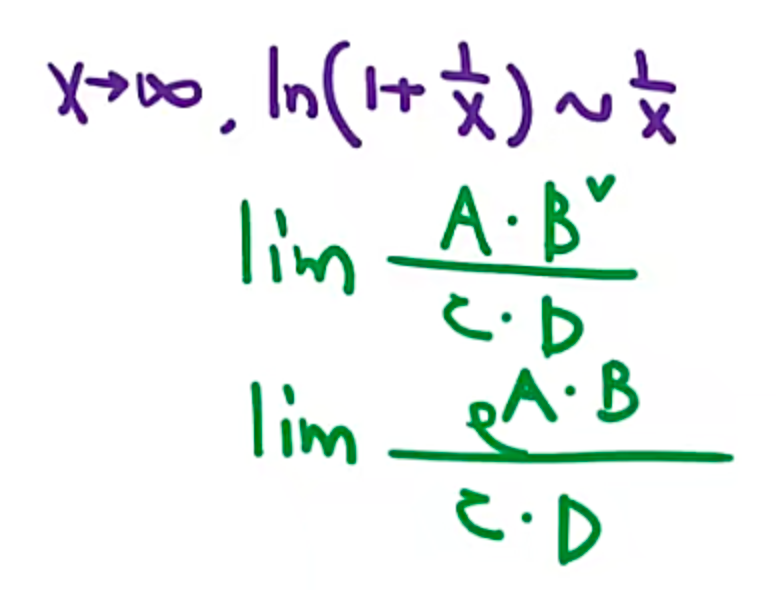 x→∞, ln(1+1/x)~1/x
lim (A·B)/(C·D) ✓
lim e^(A·B)/(C·D)